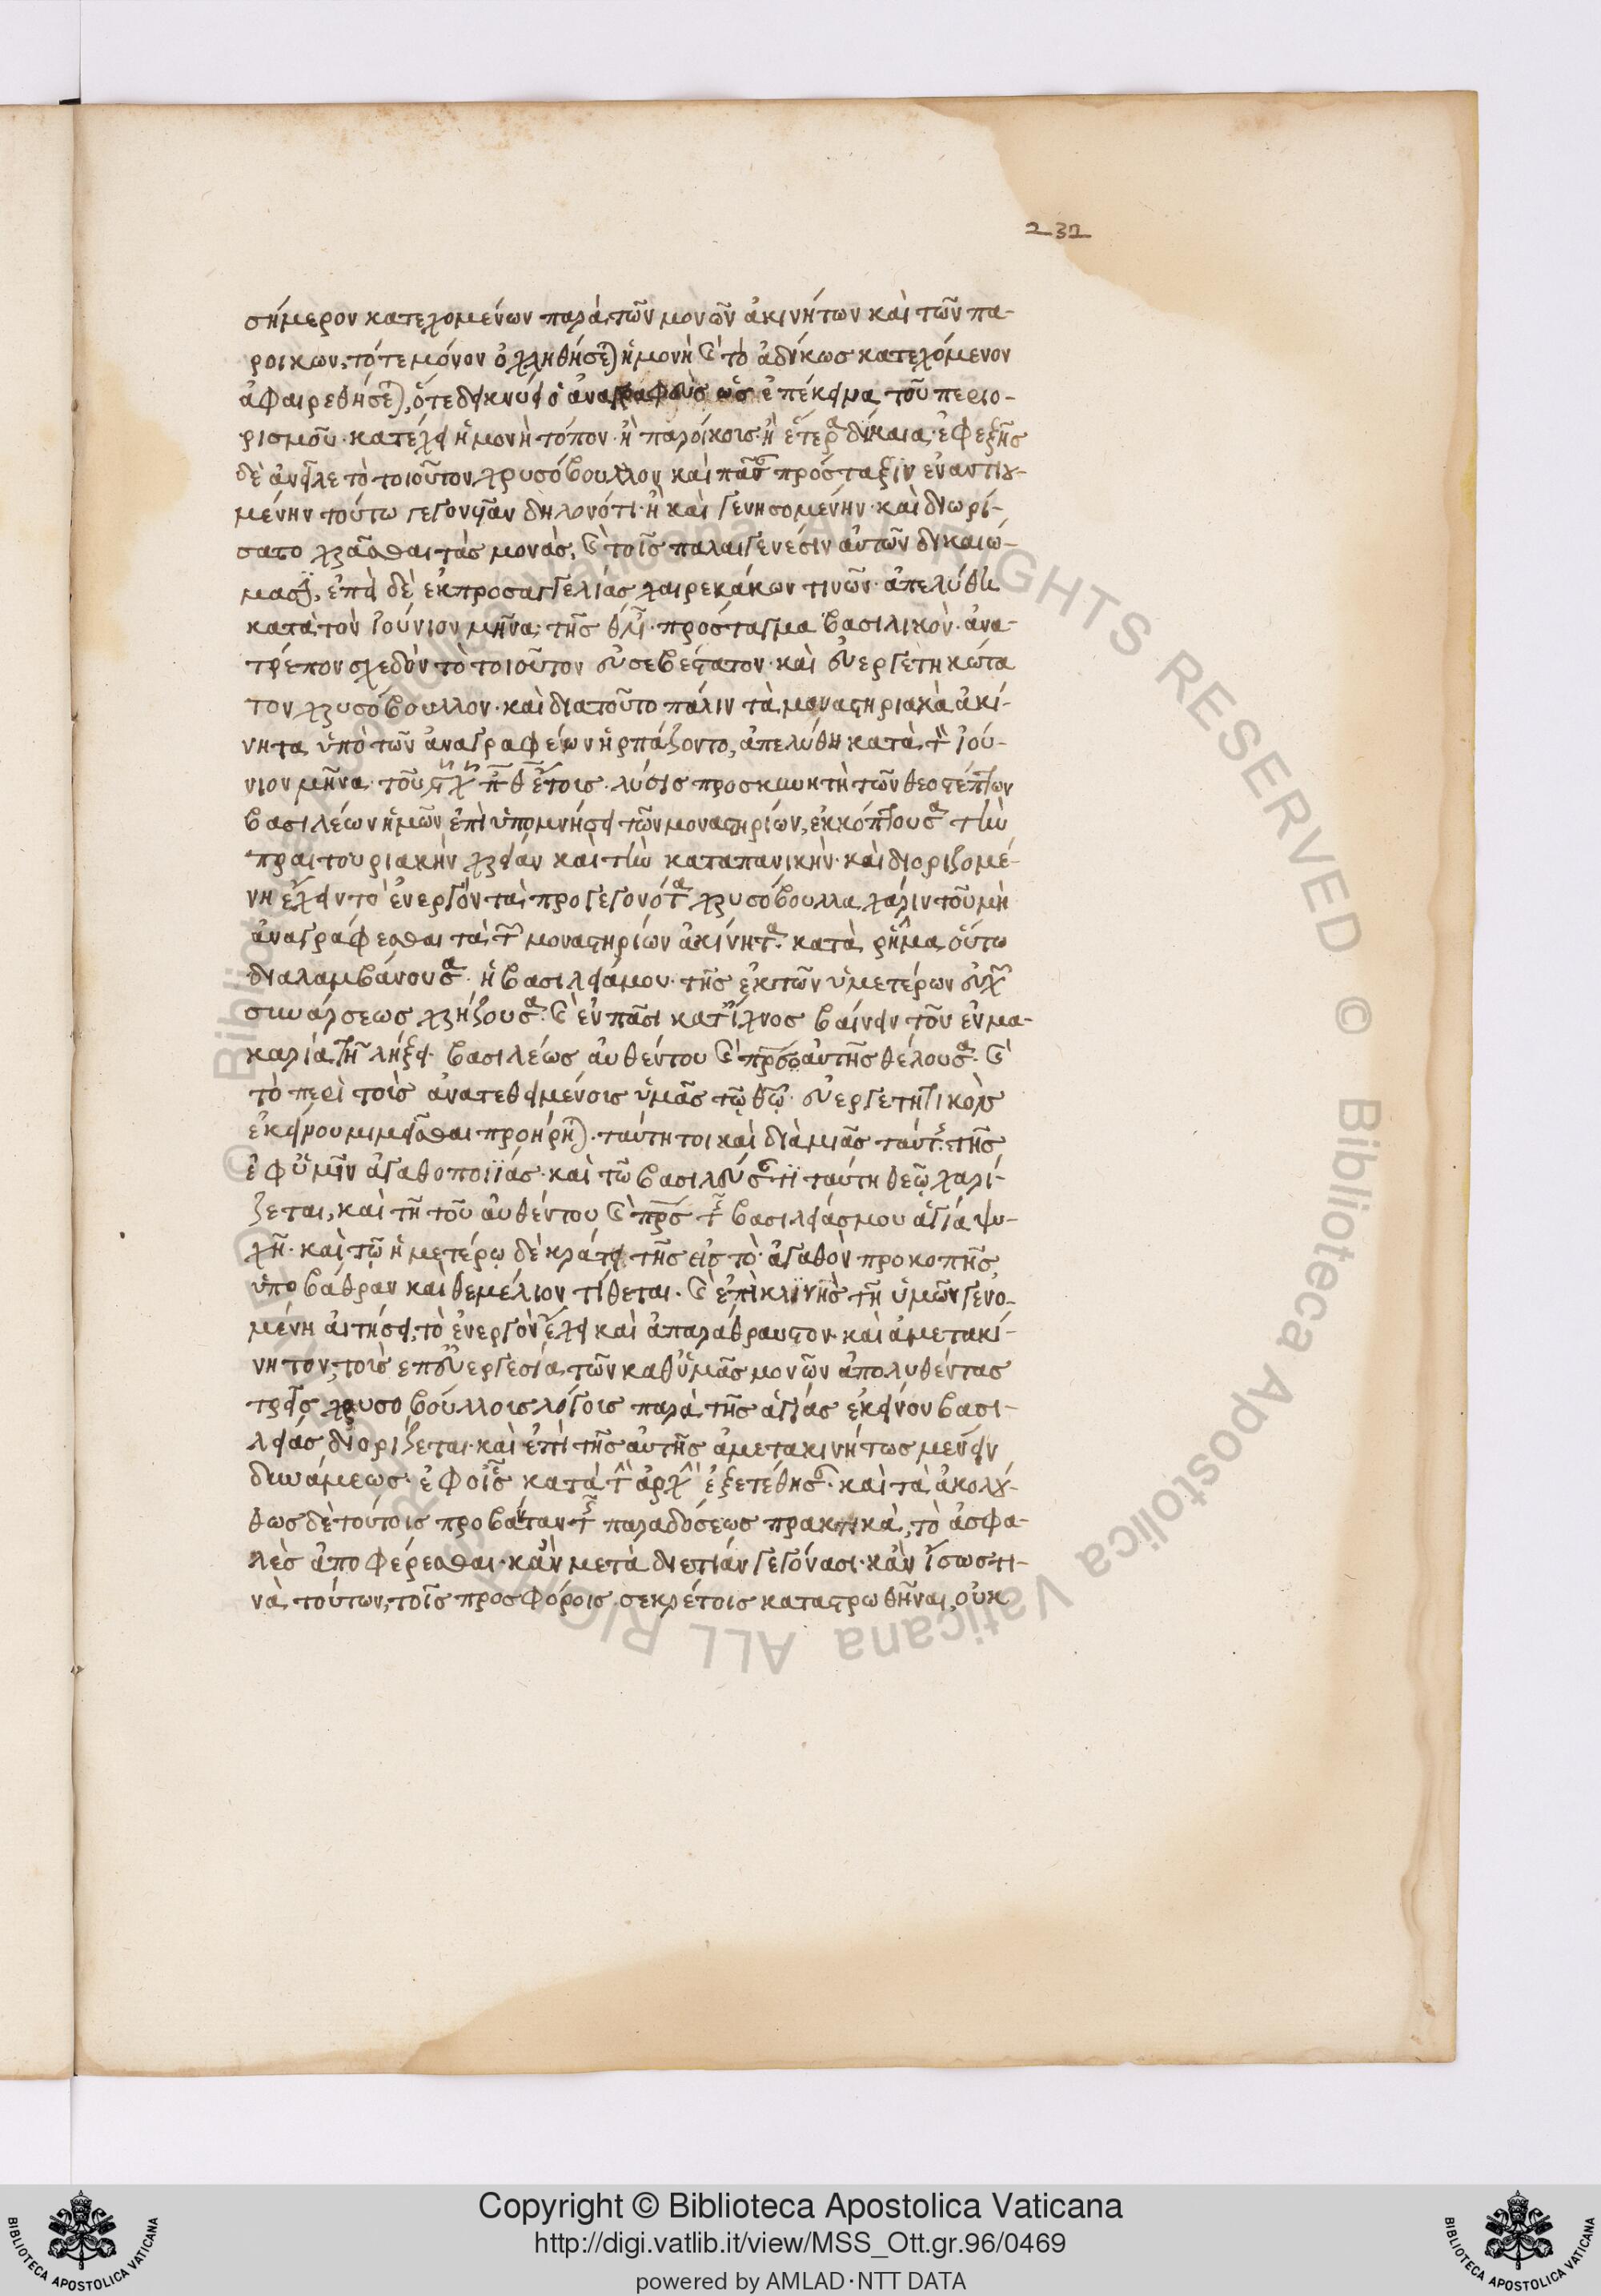 232
σήμερον κατεχομένων παρὰ τῶν μονῶν ἀκινήτων καὶ τῶν πα-
ροίκων, τότε μόνον ὀχληθήσεται ἡ μονὴ καὶ τὸ ἀδίκως κατεχόμενον
ἀφαιρεθήσεται, ὅτε δείκνυσι ὁ ἀναγραφεὺς ὡς ἐπέκεινα τοῦ περιο-
ρισμοῦ κατέχει ἡ μονὴ τόπον ἢ παροίκοις ἢ ἕτερα δίκαια ἐφεξῆς
δὲ ἀνεῖλε τὸ τοιοῦτον χρυσόβουλλον καὶ πᾶσαν πρόσταξιν ἐναντιου-
μένην τούτω γεγονεῖαν δηλονότι ἢ καὶ γενησομένην καὶ διωρί-
σατο χρᾶσθαι τὰς μονὰς, καὶ τοῖς παλαιγενέσιν αὐτῶν δικαιώ-
μασιν, ἐπεὶ δὲ ἐκ προσαγγελίας χαιρεκάκων τινῶν ἀπελύθη
κατὰ τὸν ἰούνιον μῆνα τῆς θης ἰνδικτιῶνος πρόσταγμα βασιλικὸν ἀνα-
τρέπον σχεδὸν τὸ τοιοῦτον εὐσεβέστατον καὶ εὐεργετηκώτα
τον χρυσόβουλλον καὶ διατοῦτο πάλιν τὰ μοναστηριακὰ ἀκί-
νητα ὑπὸ τῶν ἀναγραφέων ἡρπάζοντο, ἀπελύθη κατὰ τὸν ἰού-
νιον μῆνα τοῦ ϛχπθ ἔτοις λύσις προσκυνητὴ τῶν θεοστέπτων
βασιλέων ἡμῶν ἐπὶ ὑπομνήσει τῶν μοναστηρίων, ἐκκόπτουσα τὴν
πραιτουριακὴν χρείαν καὶ τὴν καταπανικὴν καὶ διοριζομέ-
νη ἔχειν τὸ ἐνεργὸν τὰ προγεγονότα χρυσόβουλλα χάριν τοῦ μὴ
ἀναγράφεσθαι τὰ τῶν μοναστηρίων ἀκίνητα κατὰ ῥῆμα οὕτω
διαλαμβάνουσα ἡ βασιλεία μου τῆς ἐκ τῶν ὑμετέρων εὐχῶν
συνάρσεως χρήζουσα καὶ ἐν πᾶσι κατίχνος βαίνειν τοῦ ἐν μα-
καρία τῆ λήξει βασιλέως αὐθέντου καὶ πατρὸς αὐτῆς θέλουσα καὶ
τὸ περὶ τοὶς ἀνατεθειμένοις ὑμᾶς τῷ θῶ εὐεργετητικὸν
ἐκείνου μιμεῖσθαι προήρηται ταύτη τοι καὶ διὰ μιᾶς ταύτης τῆς
ἐφ ὑμῖν ἀγαθοποιΐας καὶ τῶ βασιλεύσαντι ταύτη θεῷ χαρί-
ζεται, καὶ τῆ τοῦ αὐθέντου καὶ πρς τῆς βασιλείας μου ἁγία ψυ-
χῆ καὶ τῷ ἡμετέρῳ δὲ κράτει τῆς εἰς τὸ ἀγαθὸν προκοπῆς
ὑποβάθραν καὶ θεμέλιον τίθεται καὶ ἐπικλινὴς τῆ ὑμῶν γενο-
μένη αἰτήσει, τὸ ἐνεργὸν ἔχει καὶ ἀπαράθραυστον καὶ ἀμετακί-
νητον, τοὶς επ εὐεργεσία τῶν καθ ὑμᾶς μονῶν ἀπολυθέντας
τρεῖς χρυσοβούλλοις λόγοις παρὰ τῆς ἁγίας ἐκείνου βασι-
λείας διορίζεται καὶ ἐπὶ τῆς αὐτῆς ἀμετακινήτως μένειν
δυνάμεως ἐφ οἷς κατὰ τὴν ἀρχὴν ἐξετέθησαν καὶ τὰ ἀκολού-
θως δὲ τούτοις προβάνταν τῆς παραδόσεως πρακτικὰ, τὸ ἀσφα-
λὲς ἀποφέρεσθαι κἂν μετὰ διετίαν γεγόνασι κἂν ἴσως τι-
νὰ τούτων, τοῖς προσφόροις σεκρέτοις καταστρωθῆναι οὐκ
Copyright © Biblioteca Apostolica Vaticana
http://digi.vatlib.it/view/MSS_Ott.gr.96/0469
powered by AMLAD·NTT DATA
BIBLIOTECA APOSTOLICA VATICANA
BIBLIOTECA APOSTOLICA VATICANA
© Biblioteca Apostolica Vaticana ALL RIGHTS RESERVED © Biblioteca Apostolica Vaticana ALL RIGHTS RESERVED